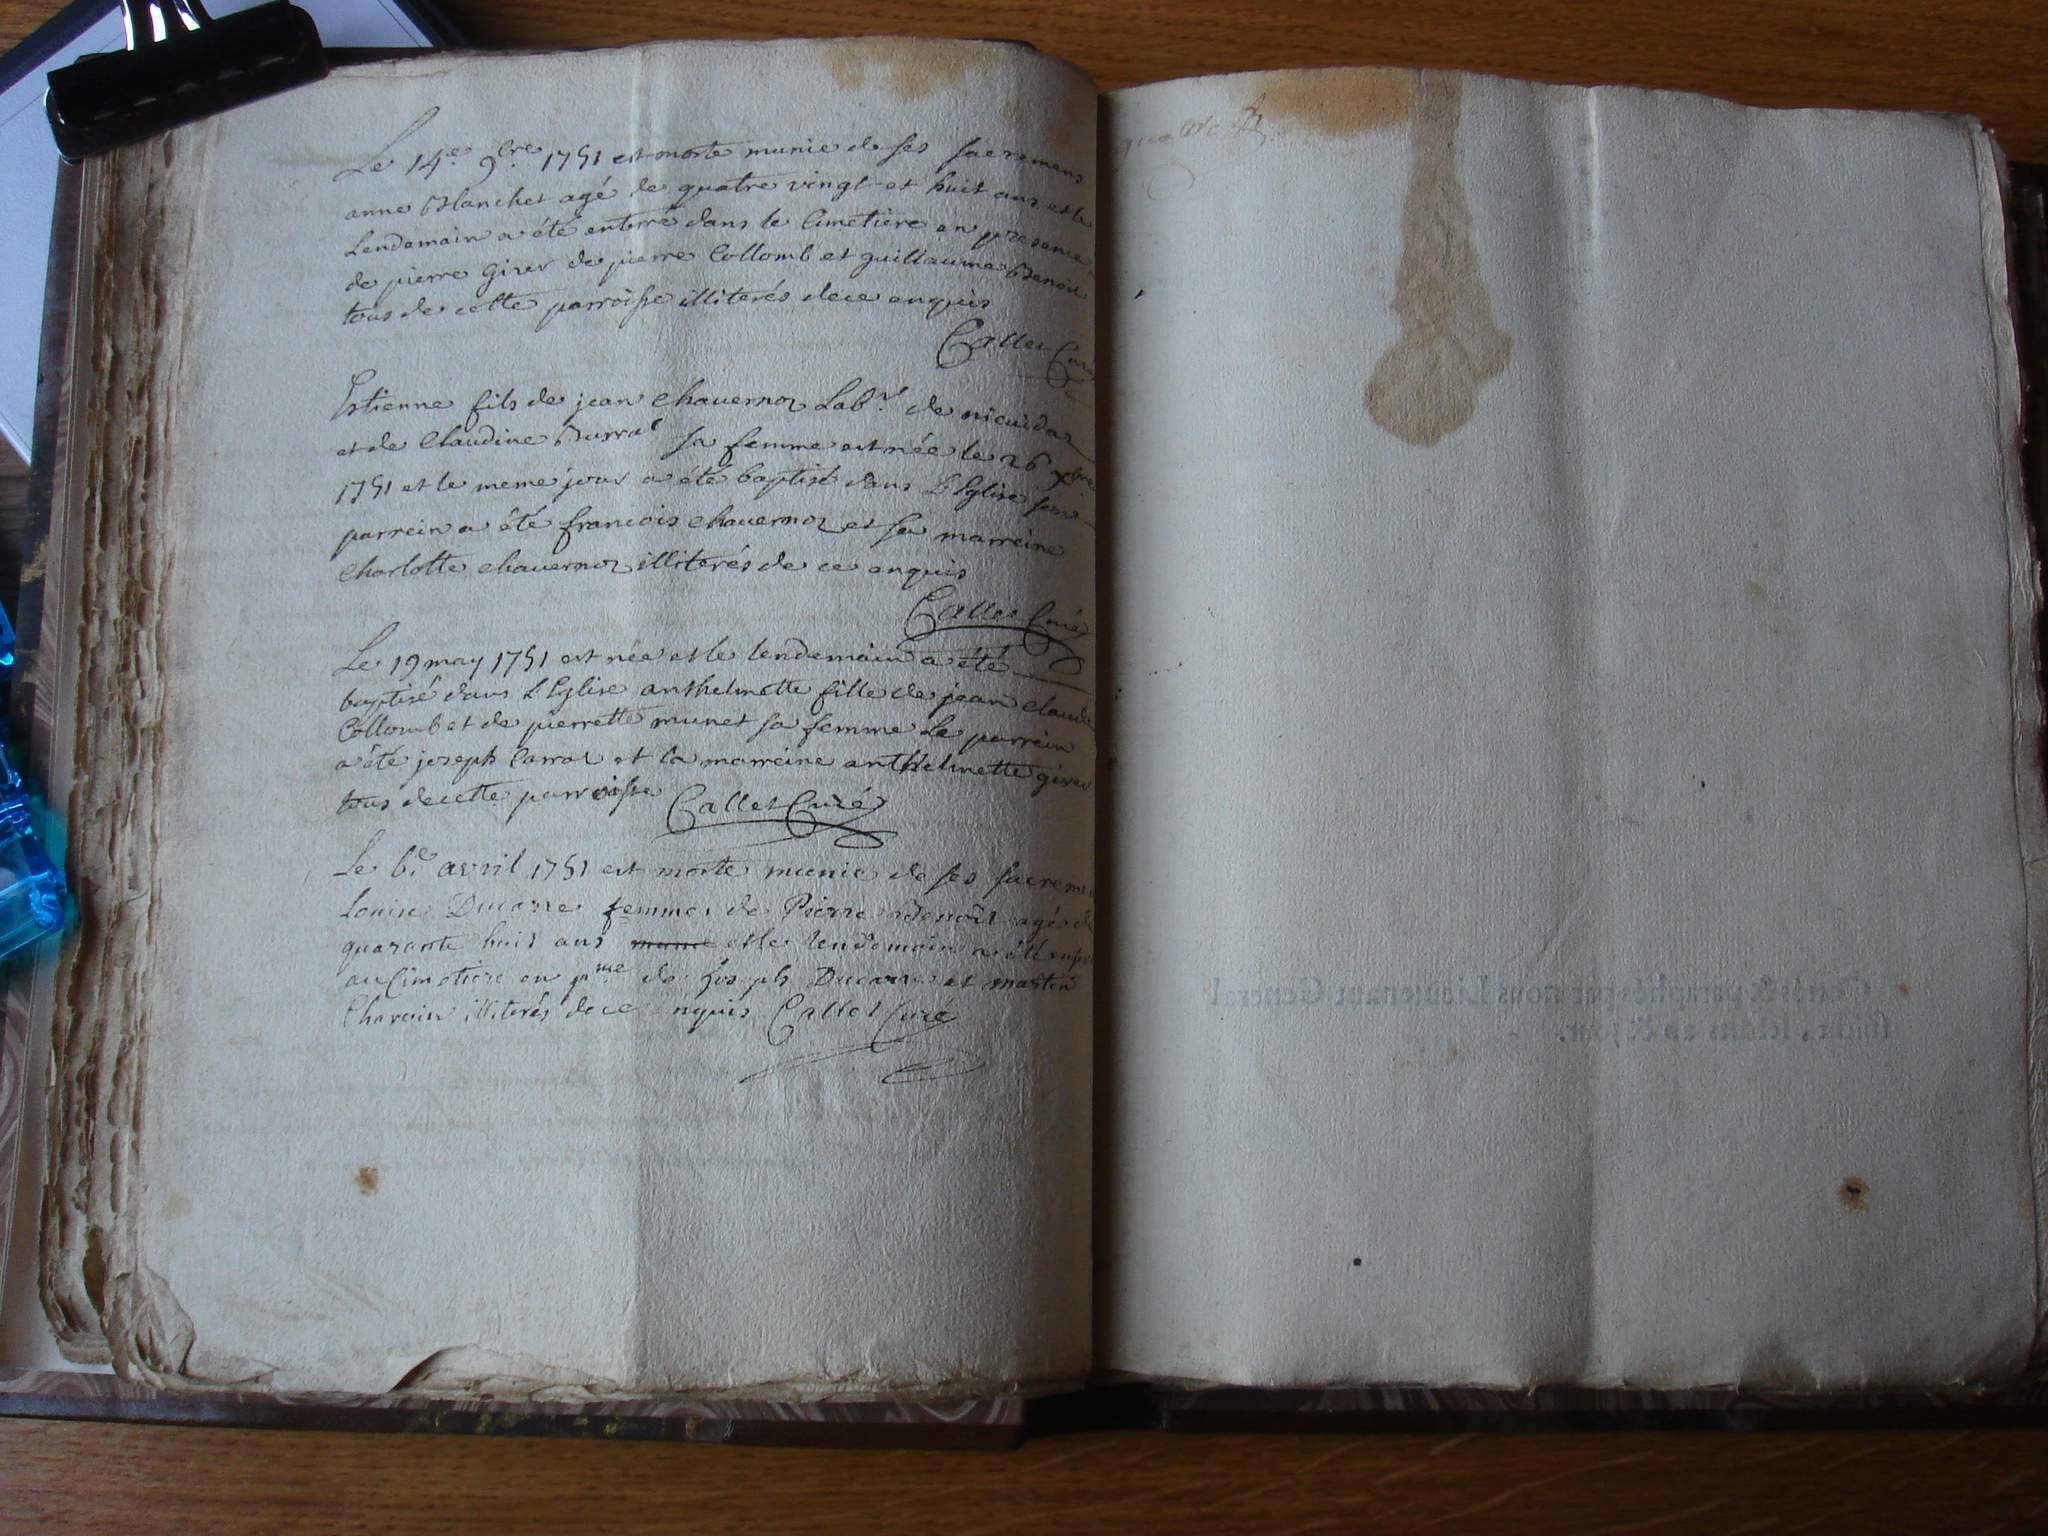 Le 14.e 9bre. 1751 est morte munie de ses sacremans
anne Blanchet agé de quatre vingt et huit ans et le
Lendemain a été enterré dans le Cimetiere en presence
de pierre Girer de pierre Collomb et guillaume Benoit
tous de cette parroisse illiterés de ce enquis
Callet Curé
Estienne fils de jean Chavernoz Labr. de
et de Claudine Burral sa femme est née le 26 xbre
1751 et le meme jour a été baptisé dans L'Eglise son
parrein a été francois chavernoz et sa marreine
Charlotte chavernoz illiterés de ce enquis
Callet Curé
Le 19 may 1751 est née et le lendemain a été
baptisé dans L'Eglise anthelmette fille de jean claude
Collomb et de pierrette munet sa femme Le parrein
a été joseph Carraz et la marreine anthelmette girer
tous de cette parroisse Callet Curé
Le 6.e avril 1751 est morte munie de ses sacremen
Louise Ducarre femme de Pierre Benoît agé de
quarante huit ans et le lendemain a été
au Cimetiere en pnce de Joseph Ducarre et martin
Charvin illiterés de ce nquis Callet Curé
Cottés & paraphés par nous Lieutenant General
susdit, lesdits an & jour.